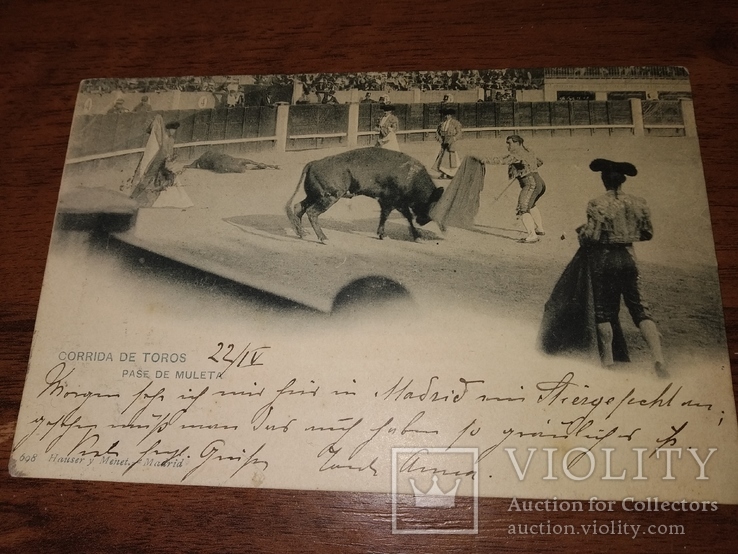 CORRIDA DE TOROS 22/IV
PASE DE MULETA
Morgen seh ich mir hier in Madrid ein Stiergefecht an;
gesehen muß man das auch haben so gräulich es ist.
Viele herzl. Grüße Tante Anna.
698 Hauser y Menet.- Madrid
VIOLITY
Auction for Collectors
auction.violity.com